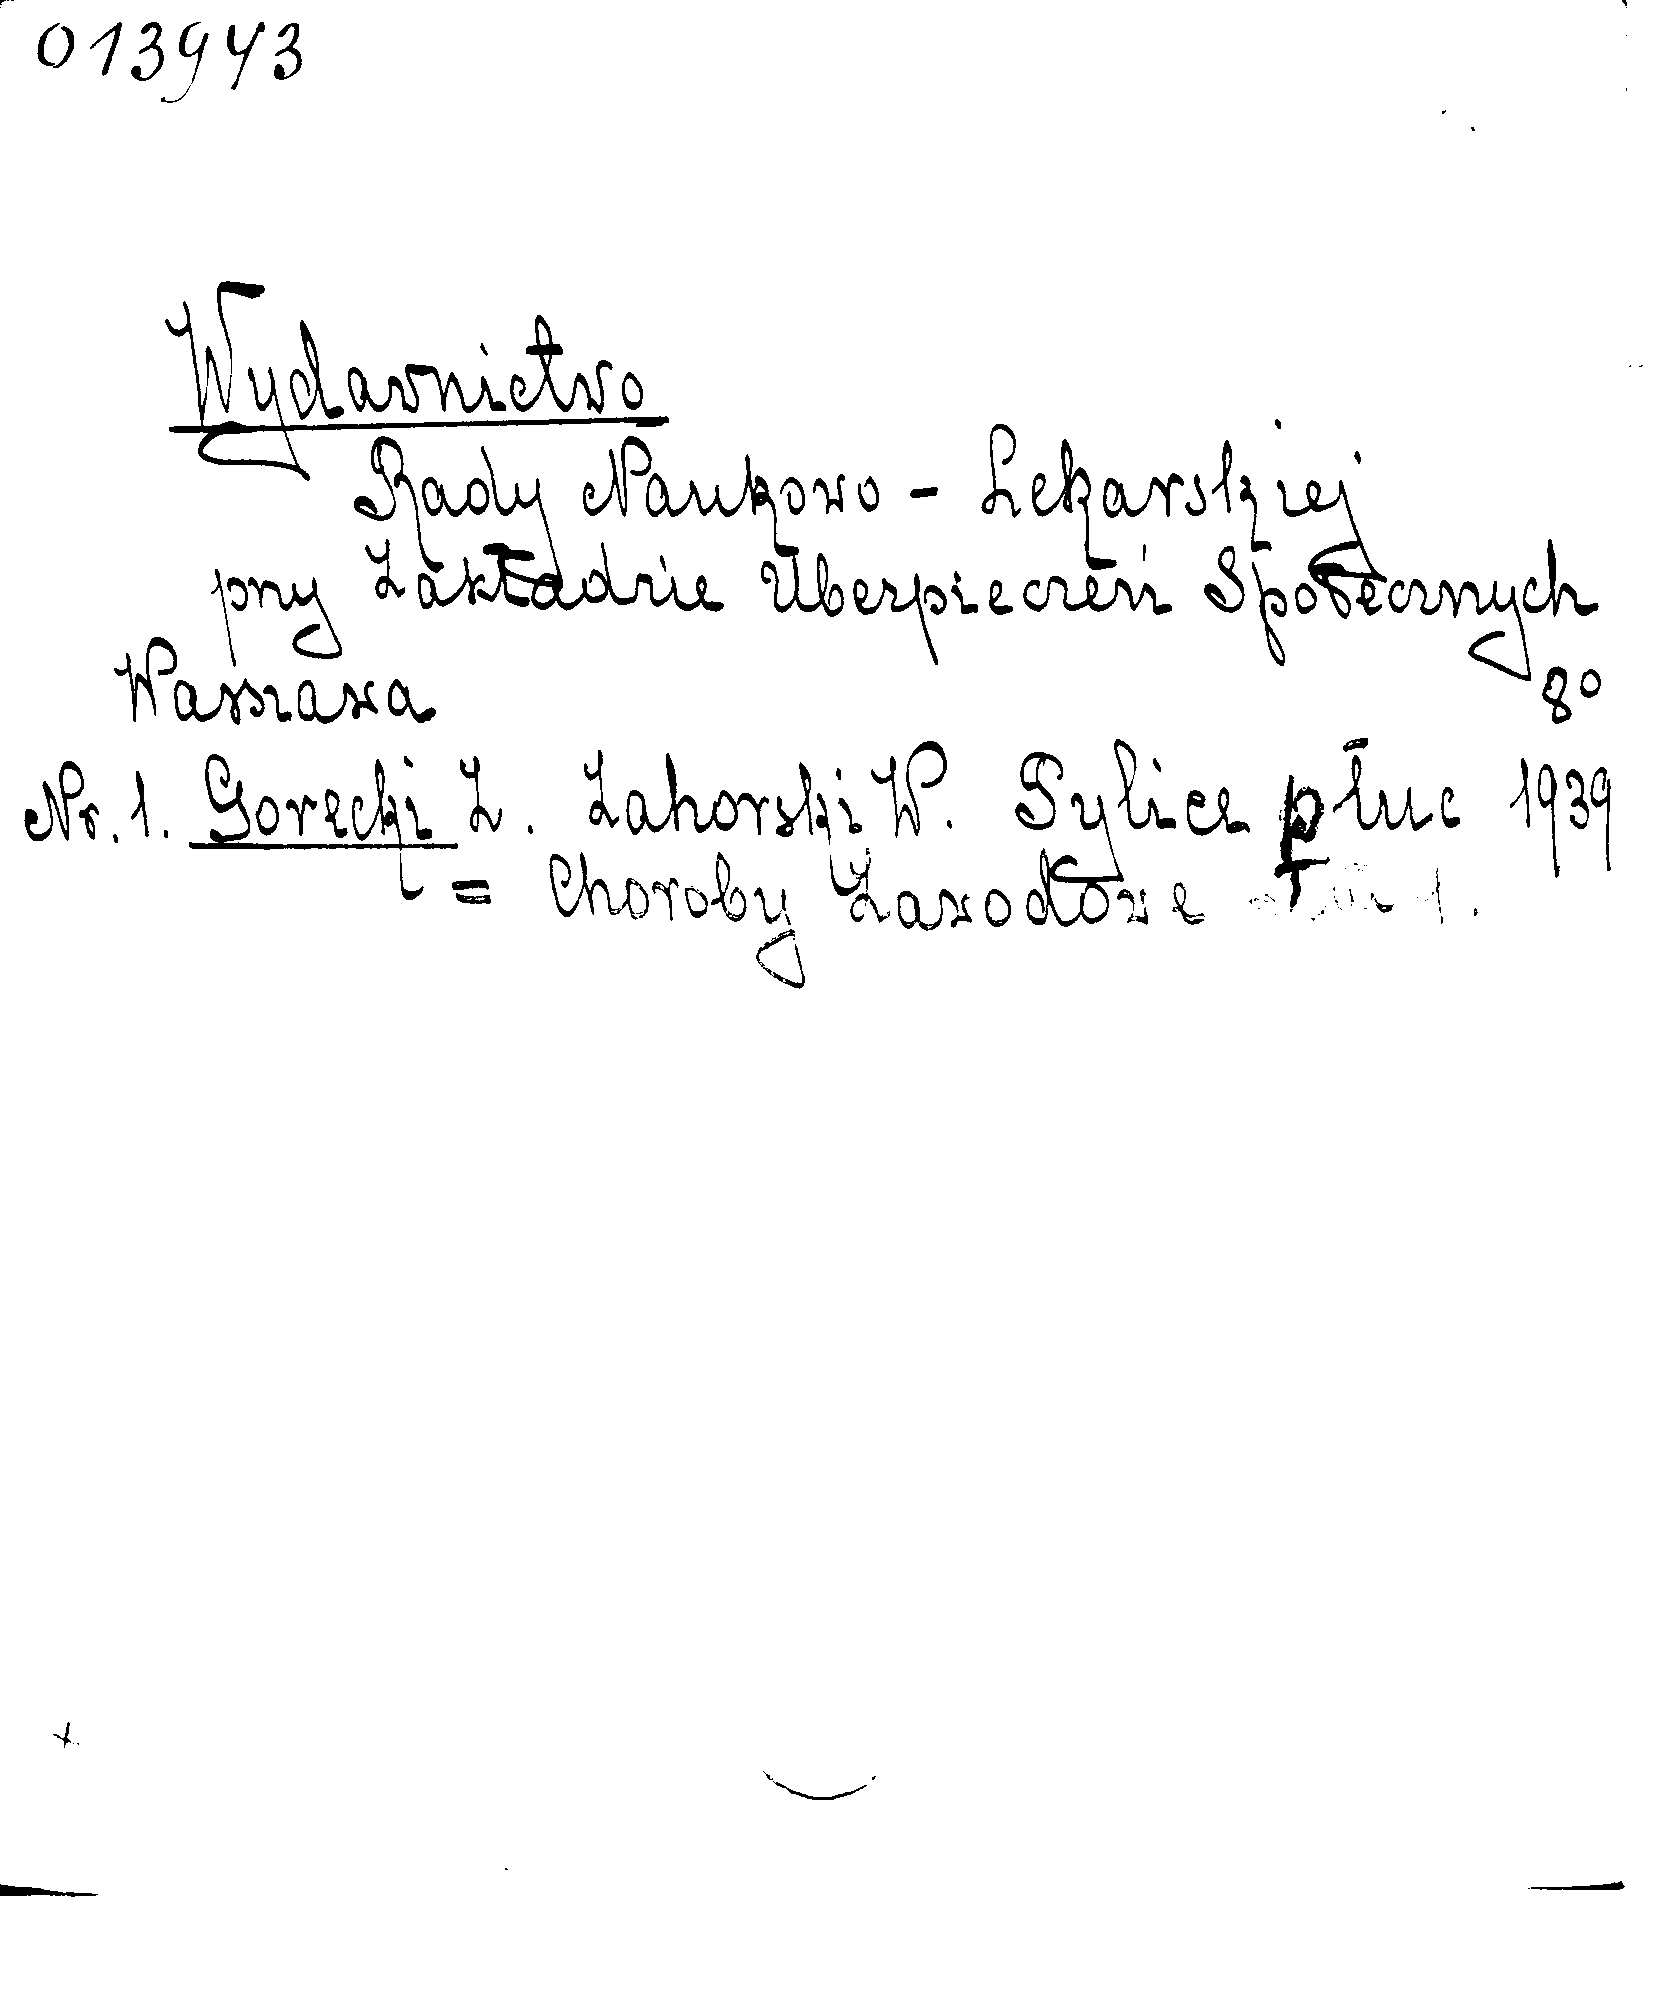 013943
Wydawnictwo
Rady Naukowo - Lekarskiej
przy Zakładzie Ubezpieczeń Społecznych
Warszawa
8º
Nr. 1. Gorecki Z. Zahorski W. Pylice płuc 1939
= Choroby Zawodowe 1.